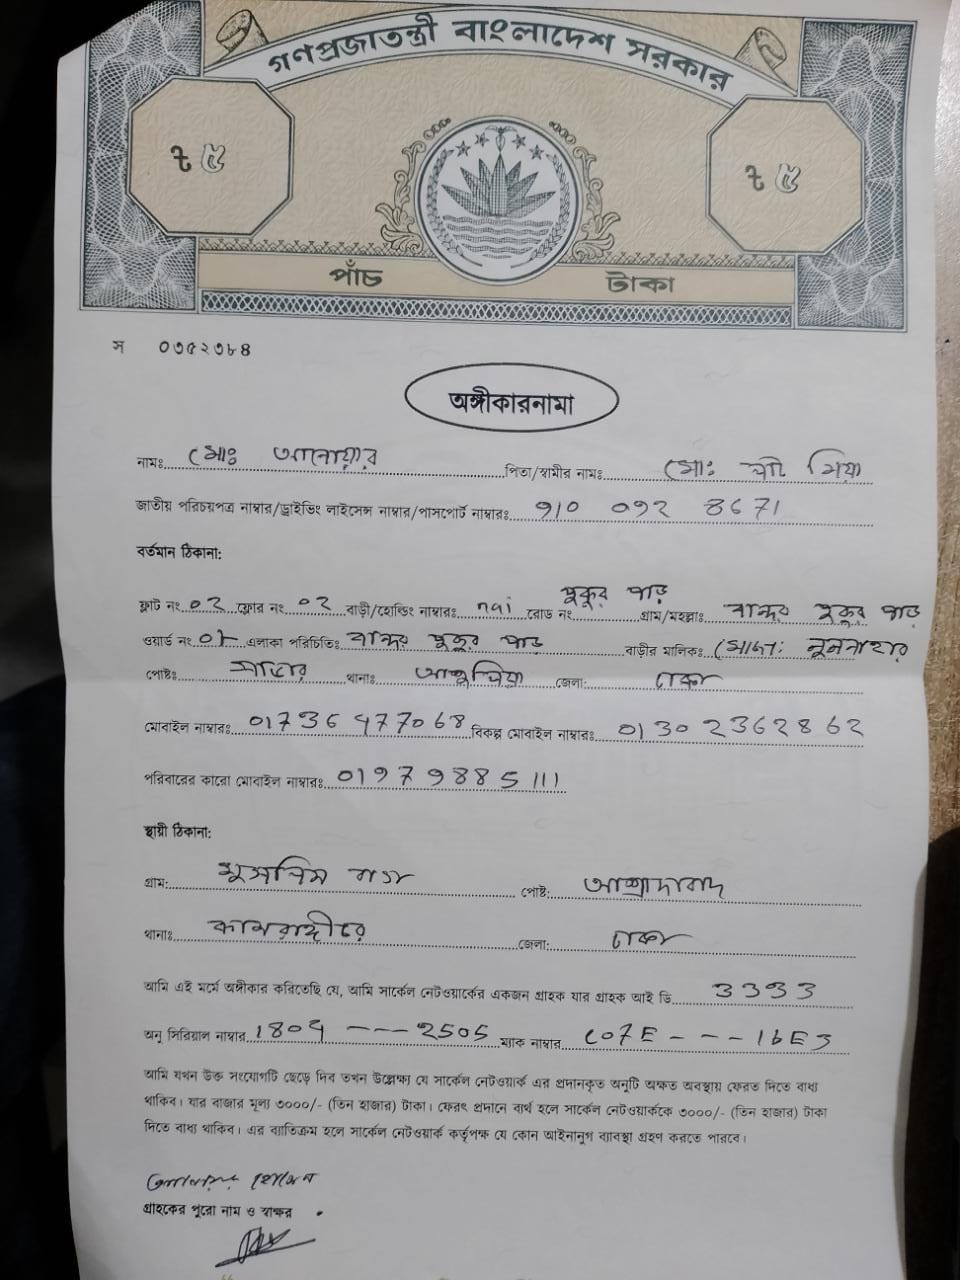 গণপ্রজাতন্ত্রী বাংলাদেশ সরকার
৳ ৫ ৳ ৫
পাঁচ টাকা
স ০৩৫২৩৮৪
অঙ্গীকারনামা
নামঃ মোঃ আনোয়ার পিতা/স্বামীর নামঃ মোঃ মিয়া
জাতীয় পরিচয়পত্র নাম্বার/ড্রাইভিং লাইসেন্স নাম্বার/পাসপোর্ট নাম্বারঃ 910 092 8671
বর্তমান ঠিকানা:
ফ্লাট নং ০২ ফ্লোর নং ০২ বাড়ী/হোল্ডিং নাম্বারঃ nai রোড নং পুকুর পাড় গ্রাম/মহল্লাঃ পুকুর পাড়
ওয়ার্ড নং এলাকা পরিচিতিঃ পুকুর পাড় বাড়ীর মালিকঃ মোসা: নুরনাহার
পোষ্টঃ সাভার থানাঃ আশুলিয়া জেলা: ঢাকা
মোবাইল নাম্বারঃ 01736477068 বিকল্প মোবাইল নাম্বারঃ 01302362862
পরিবারের কারো মোবাইল নাম্বারঃ 01979885111
স্থায়ী ঠিকানা:
গ্রাম: মুসলিম বাগ পোষ্ট: আশ্রাফাবাদ
থানাঃ কামরাঙ্গীচর জেলা: ঢাকা
আমি এই মর্মে অঙ্গীকার করিতেছি যে, আমি সার্কেল নেটওয়ার্কের একজন গ্রাহক যার গ্রাহক আই ডি 3393
অনু সিরিয়াল নাম্বার 1809 --- 2505 ম্যাক নাম্বার C07E - - - 1bE3
আমি যখন উক্ত সংযোগটি ছেড়ে দিব তখন উল্লেক্ষ্য যে সার্কেল নেটওয়ার্ক এর প্রদানকৃত অনুটি অক্ষত অবস্থায় ফেরত দিতে বাধ্য
থাকিব। যার বাজার মূল্য ৩০০০/- (তিন হাজার) টাকা। ফেরৎ প্রদানে ব্যর্থ হলে সার্কেল নেটওয়ার্ককে ৩০০০/- (তিন হাজার) টাকা
দিতে বাধ্য থাকিব। এর ব্যতিক্রম হলে সার্কেল নেটওয়ার্ক কর্তৃপক্ষ যে কোন আইনানুগ ব্যাবস্থা গ্রহণ করতে পারবে।
আনোয়ার হোসেন
গ্রাহকের পুরো নাম ও স্বাক্ষর